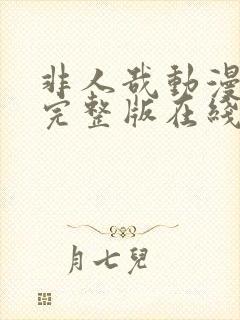 非人哉動漫
完整版在綫
月七兒